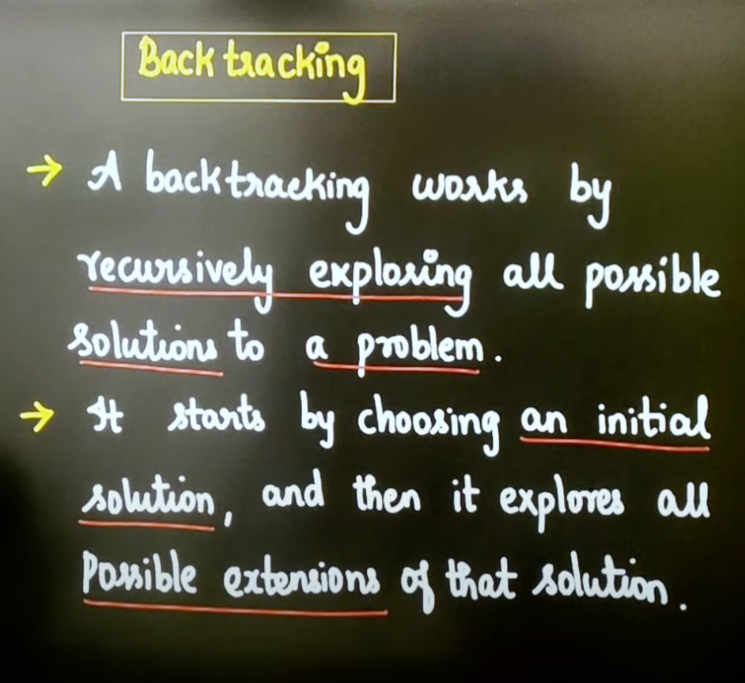 Back tracking
→ A backtracking works by
recursively exploring all possible
solutions to a problem.
→ It starts by choosing an initial
solution, and then it explores all
Possible extensions of that solution.